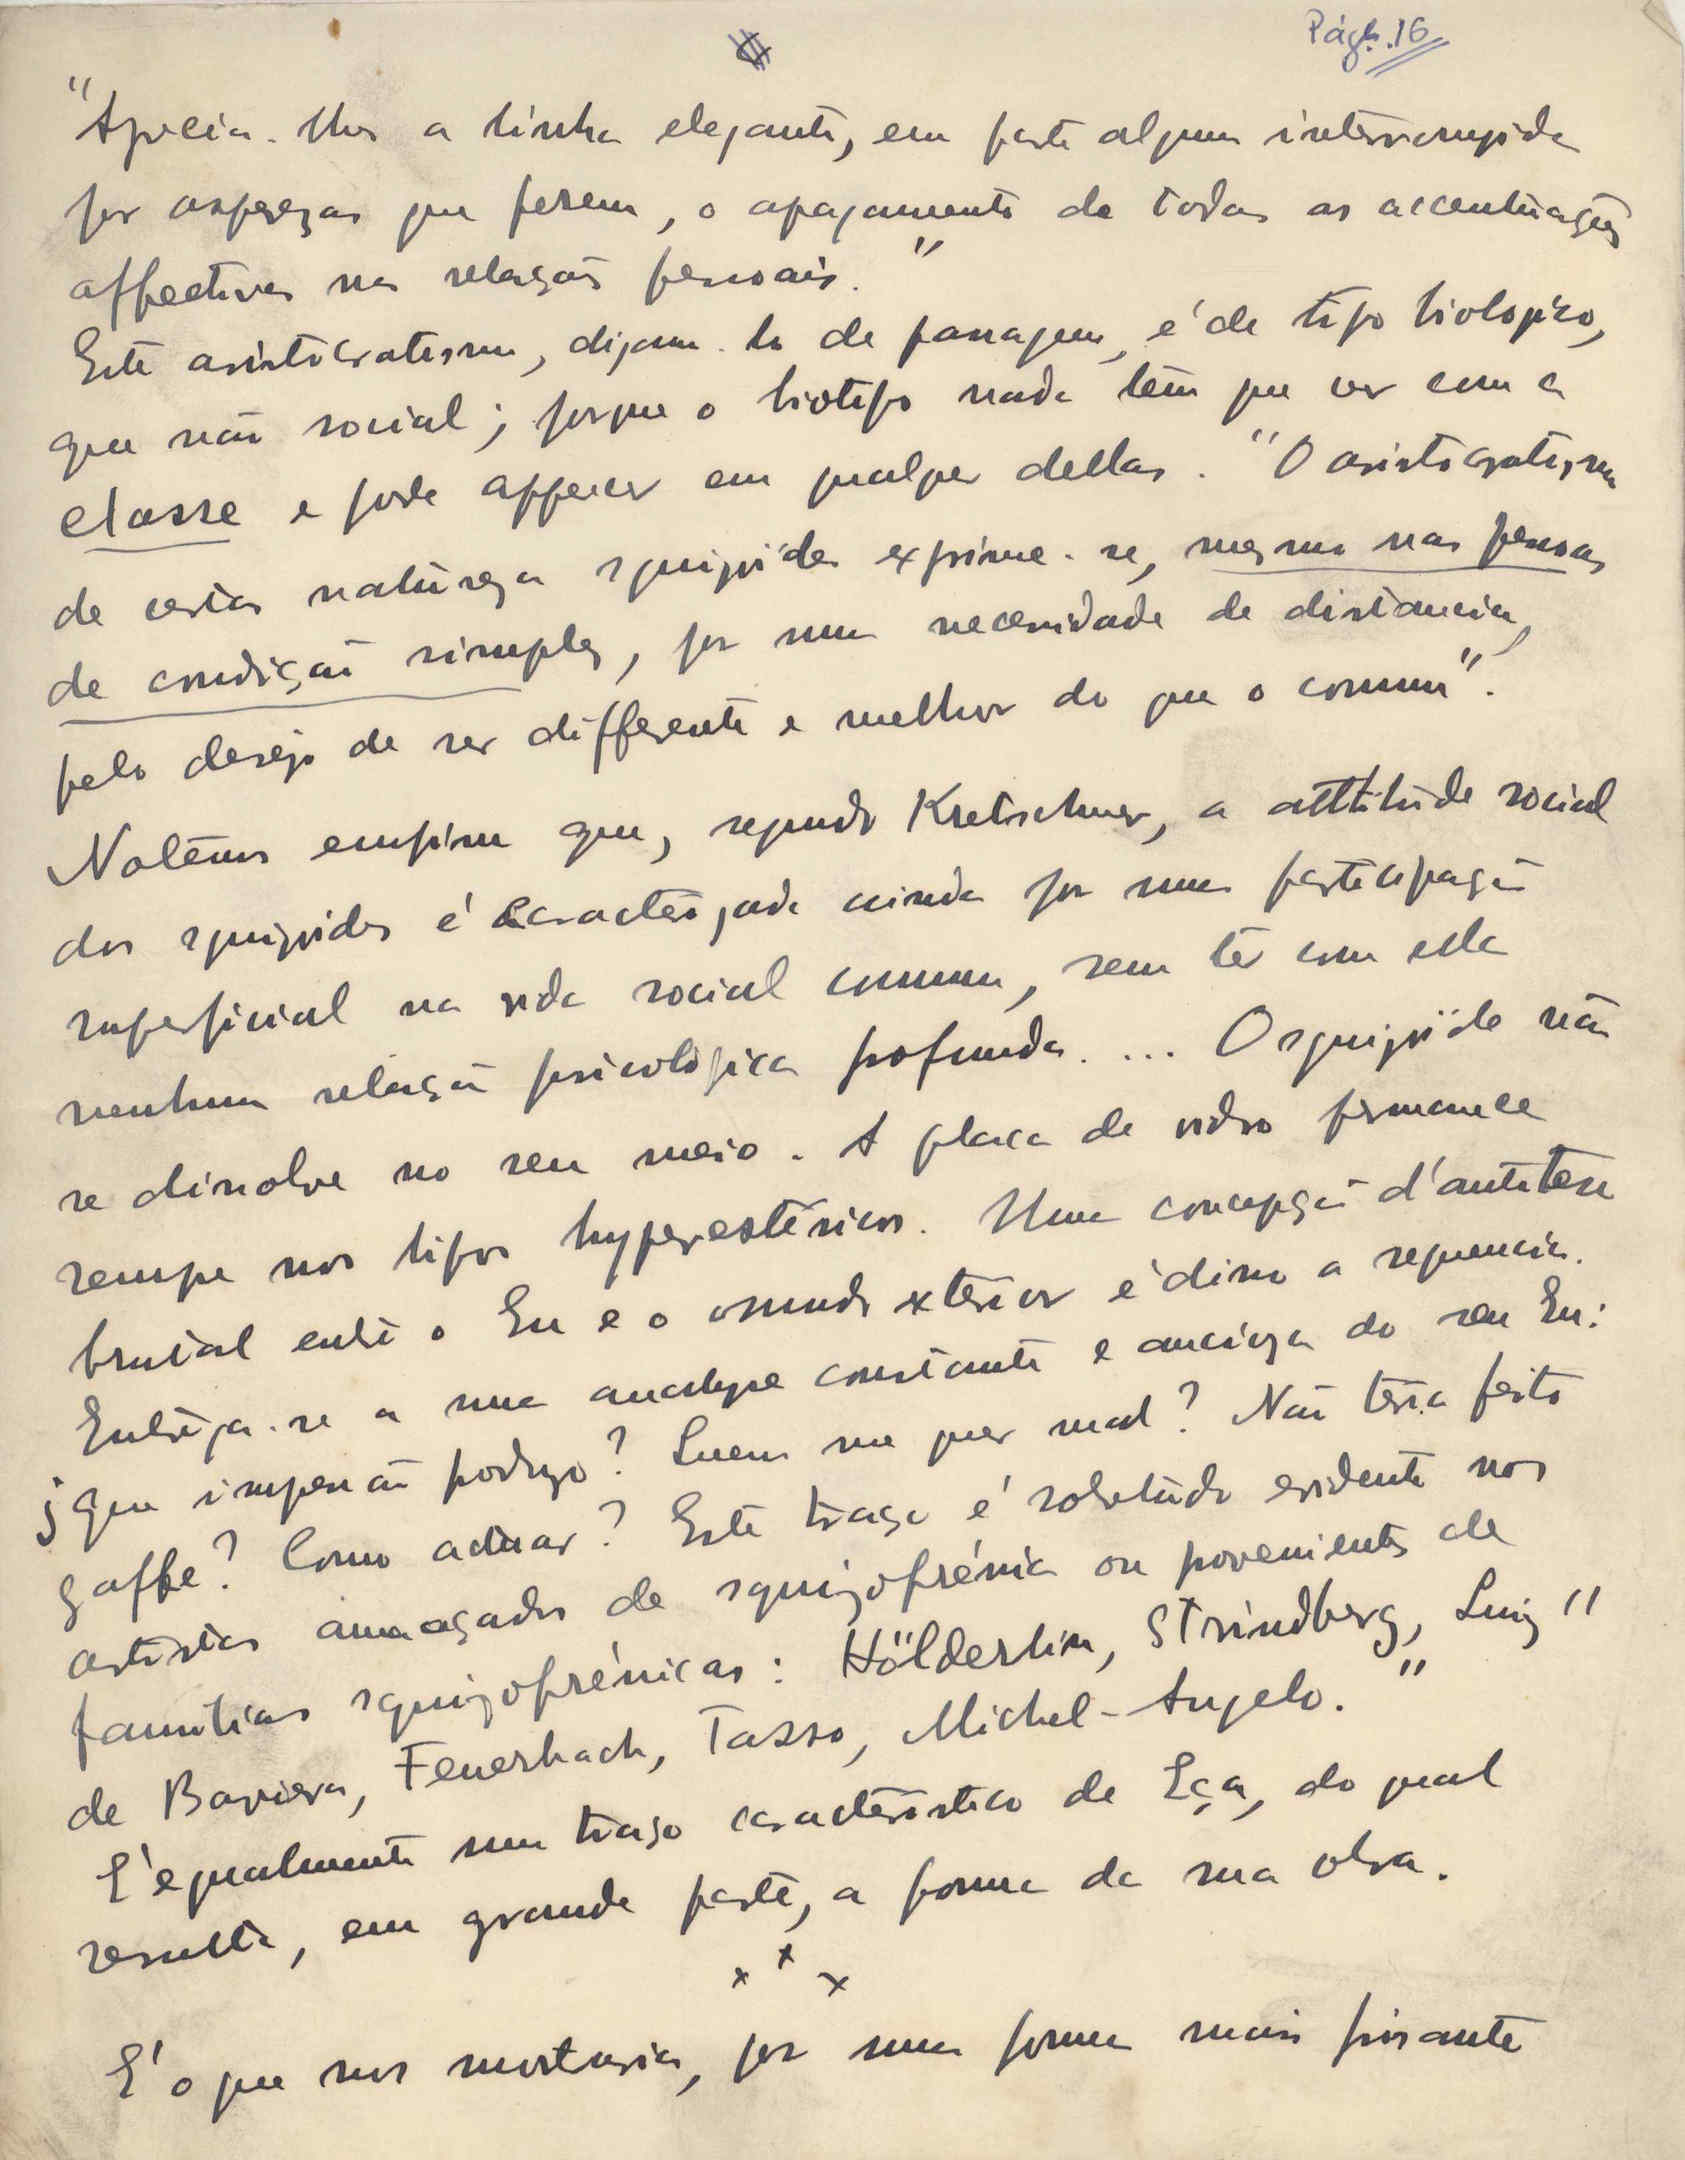 Pág. 16
"Aprecia-lhes a linha elegante, em parte alguma interrompida
por asperezas que ferem, o apagamento de todas as accentuações
affectivas nas relações pessoais."
Este aristocratismo, digam-lo de passagem, é de tipo biologico,
que não social; porque o biotipo nada têm que ver com a
classe e pode apparecer em qualquer dellas. "O aristocratismo
de certas naturezas squizóides exprime-se, mesmo nas pessoas
de condição simples, por uma necessidade de distancia,
pelo desejo de ser differente e melhor do que o commum".
Notêmos emfim que, segundo Kretschmer, a attitude social
dos squizoides é caracterizada ainda por uma participação
superficial na vida social commum, sem ter com ella
nenhuma relação psicológica profunda. ... O squizoïde não
se dissolve no seu meio. A placa de vidro permanece
sempre nos tipos hyperestésicos. Uma concepção d'antitese
brutal entre o Eu e o mundo exterior é disso a sequencia.
Entrega-se a uma analyse constante e anciosa do seu Eu:
que impressão produzo? Quem me quer mal? Não teria feito
gaffe? Como actuar? Este traço é sobretudo evidente nos
artistas ameaçados de squizofrénia ou provenientes de
familias squizofrénicas: Hölderlin, Strindberg, Luiz II
de Baviera, Feuerbach, Tasso, Michel-Angelo."
E' egualmente um traço caracteristico de Eça, do qual
resulta, em grande parte, a forma da sua obra.
x x x
E' o que nos mostraria, por uma forma mais frisante